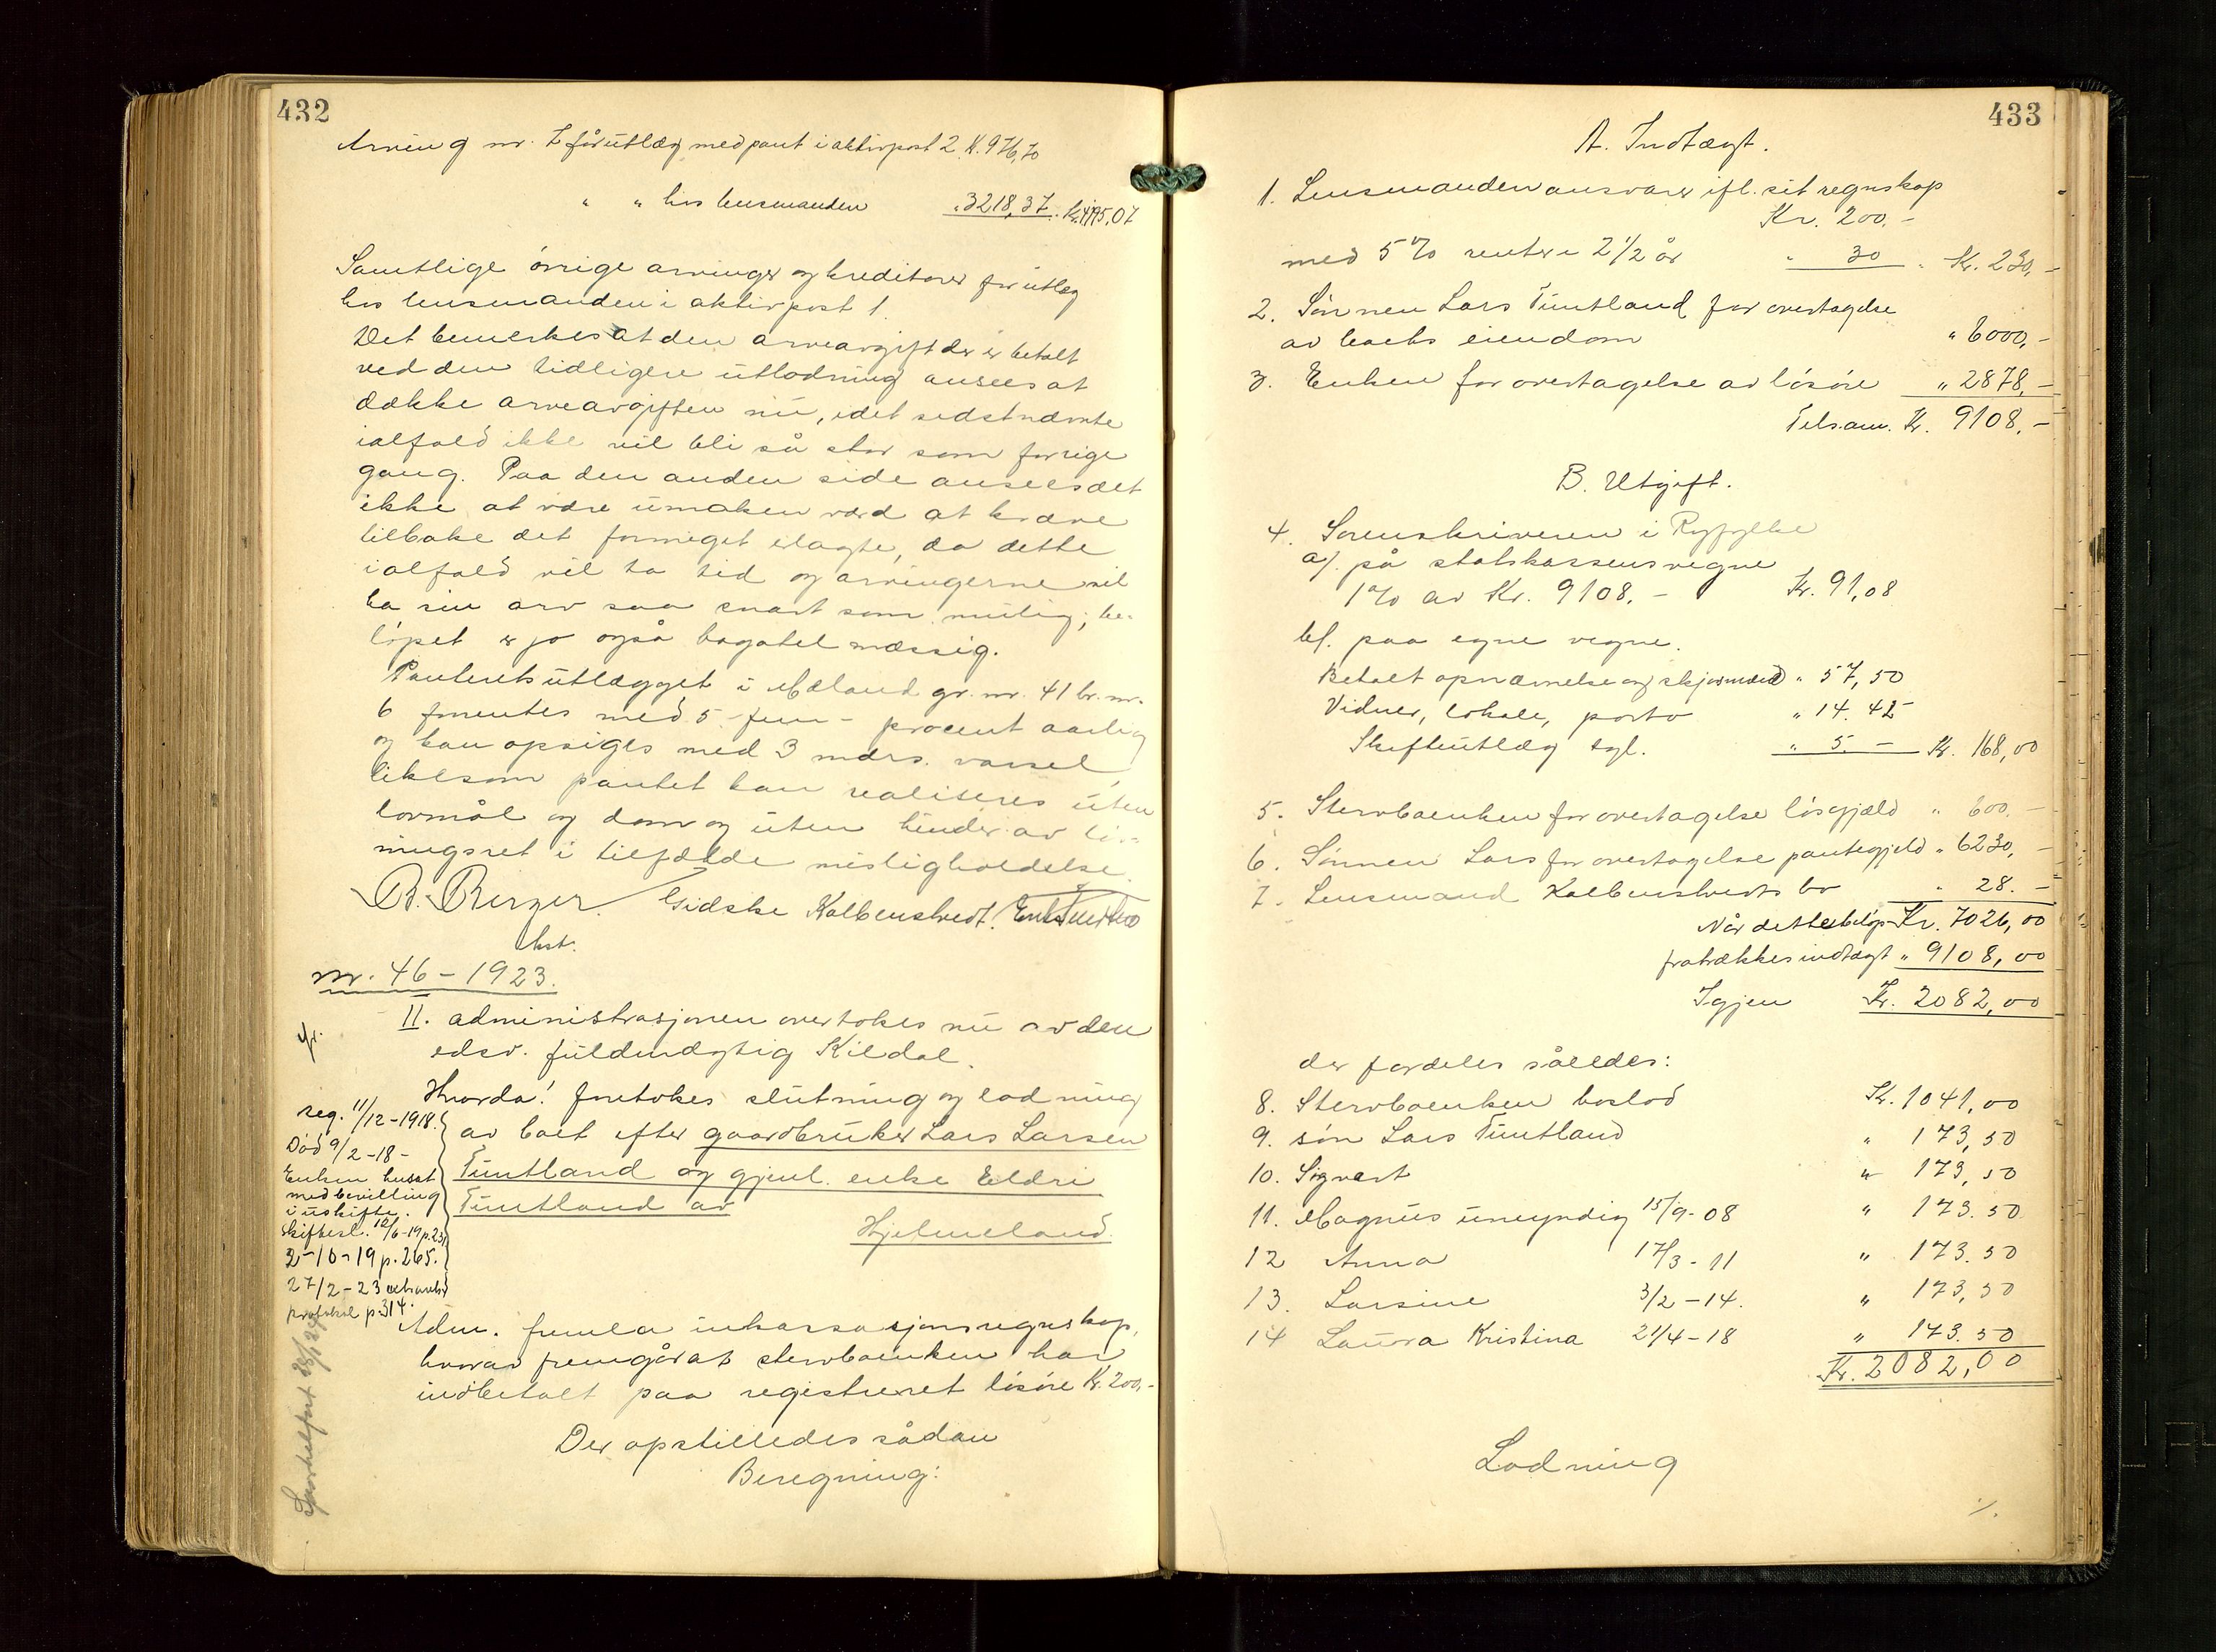 432
Arving nr. 7 får utlæg med pant i aktivpost 2 K. 976,70
" " hos lensmanden " 3218,37. Kr. 4195,07
Samtlige övrige arvinger og kreditorer får utlæg
hos lensmanden i aktivpost 1.
Det bemerkes at den arveavgift der er betalt
ved den tidligere utlodning ansees at
dække arveavgiften nu, idet sidstnævnte
ialfald ikke vil bli så stor som forrige
gang. Paa den anden side ansees det
ikke at være umaken værd at kræve
tilbake det formeget erlagte, da dette
ialfald vil ta tid og arvingerne vil
ha sin arv saa snart som mulig; be-
löpet er jo også bagatelmæssig.
Panterets utlægget i Mæland gr. nr. 41 br. nr.
6 forrentes med 5 - fem - procent aarlig
og kan opsiges med 3 mdrs. varsel,
likesom pantet kan realiseres uten
lovmål og dom og uten hinder av lös-
ningsret i tilfælde misligholdelse.
B. Berger. Gidske Kolbenstvedt.
kst.
nr. 46 - 1923.
II. administrasjonen overtokes nu av den
edsv. fuldmægtig Kildal.
Hvorda! foretokes slutning og lodning
av boet efter gaardbruker Lars Larsen
Tuntland og gjenl. enke Eldri
Tuntland av
Hjelmeland.
reg. 11/12 - 1918.
Död 9/2 - 18 -
Enken hensat
med bevilling
i uskifte.
Skiftesl. 12/6-19 p. 231
2-10-19 p. 265.
27/2 - 23
protokol p. 314.
Adm. fremla inkassasjonsregnskap,
hvorav fremgår at stervboenken har
indbetalt paa registreret lösöre Kr. 200,-
Der opstilledes sådan
Beregning:
433
A. Indtægt.
1. Lensmanden ansvarer ifl. sit regnskap
Kr. 200. -
med 5 % renter i 2 1/2 år " 30 " Kr. 230, -
2. Sönnen Lars Tuntland for overtagelse
av boets eiendom " 6000, -
3. Enken for overtagelse av lösöre " 2878, -
Tilsam. Kr. 9108. -
B. Utgift.
4. Sorenskriveren i Ryfylke
a/. på statskassens vegne
1 % av Kr. 9108. - Kr. 91,08
b/. paa egne vegne.
Betalt opnævnelse og skjönsmænd " 57,50
Vidner, lokale, porto " 14. 42
Skifteutlæg tgl. " 5. - Kr. 168,00
5. Stervboenken for overtagelse lösgjæld " 600. -
6. Sönnen Lars for overtagelse pantegjeld " 6230, -
7. Lensmand Kolbenstvedts bo " 28. -
Når dette belöp Kr. 7026,00
fratrækkes indtægt " 9108,00
Igjen Kr. 2082,00
der fordeles således:
8. Stervboenken boslod Kr. 1041,00
9. sön Lars Tuntland " 173,50
10. Sigvart " 173,50
11. Magnus umyndig 15/9 - 08 " 173. 50
12 Anna 17/3 - 11 " 173. 50
13. Larsine 3/2 - 14. " 173,50
14 Laura Kristina 21/4 - 18 " 173. 50
Kr. 2082,00
Lodning
./.